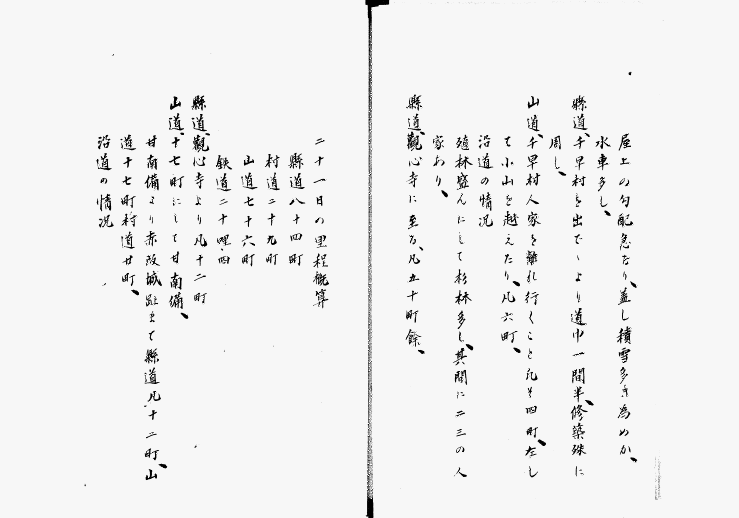 屋上の勾配急なり、蓋し積雪多き為めか、
水車多し、
縣道、千早村を出でゝより道巾一間半、修築殊に
周し、
山道、千早村人家を離れ行くこと凡そ四町、左し
て小山を越えたり、凡六町、
沿道の情況
殖林盛んにして杉林多し、其間に二三の人
家あり、
縣道、觀心寺に至る、凡五十町餘、
二十一日の里程概算
縣道八十四町
村道二十九町
山道七十六町
鉄道二十哩四
縣道、觀心寺より凡十二町
山道、十七町にして甘南備、
甘南備より赤坂城趾まで縣道凡十二町、山
道十七町村道廿町、
沿道の情況